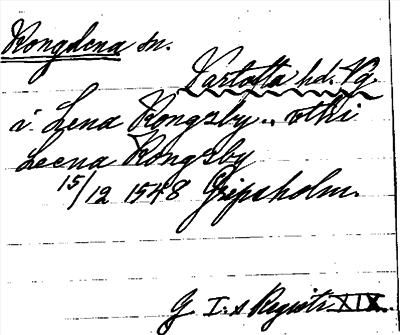 Kongslena sn.
Vartofta hd. Vg.
i Lena Kongsby .. othi
Leena Kongsby
15/12 1548 Gripsholm.
G. I:s Registr. XIX.